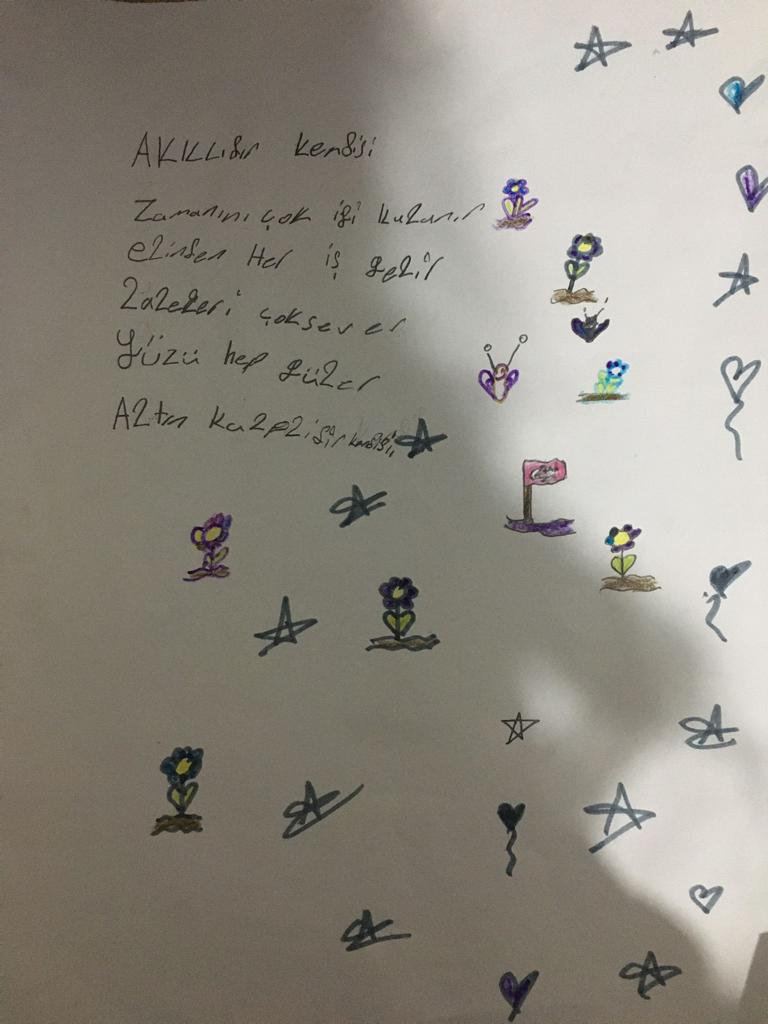 AKILLIdır kendisi
Zamanını çok iyi kulanır
elinden Her iş gelir
Laleleri çok sever
Yüzü hep güler
Altın kalplidir kendisi